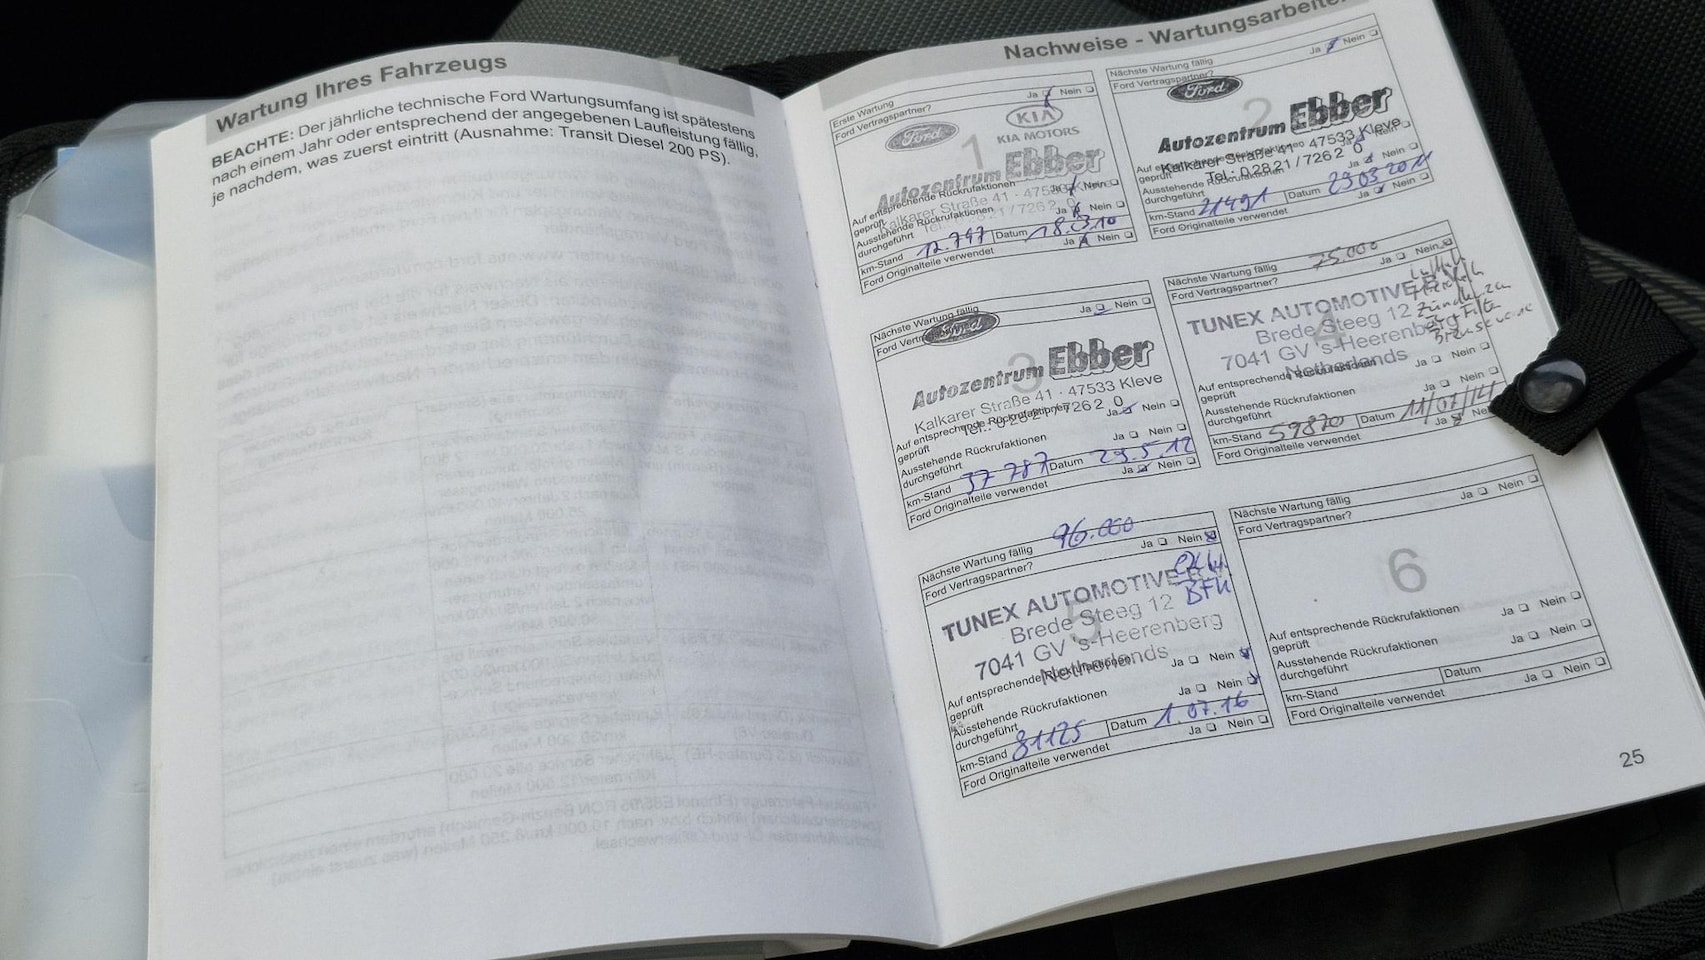 Wartung Ihres Fahrzeugs
BEACHTE: Der jährliche technische Ford Wartungsumfang ist spätestens
nach einem Jahr oder entsprechend der angegebenen Laufleistung fällig,
je nachdem, was zuerst eintritt (Ausnahme: Transit Diesel 200 PS).
Nachweise - Wartungsarbeiten
Erste Wartung
Ford Vertragspartner? Ja Nein
Ford
KIA
KIA MOTORS
1
Autozentrum Ebber
Kalkarer Straße 41 - 47533 Kleve
Auf entsprechende Rückrufaktionen
geprüft Ja Nein
Ausstehende Rückrufaktionen
durchgeführt Ja Nein
km-Stand 12.797 Datum 18.03.10
Ford Originalteile verwendet Ja Nein
Nächste Wartung fällig
Ford Vertragspartner? Ja Nein
Ford
2
Autozentrum Ebber
Kalkarer Straße 41 · 47533 Kleve
Tel.: 0 28 21 / 7 26 2 0
Auf entsprechende Rückrufaktionen
geprüft
Ausstehende Rückrufaktionen
durchgeführt Ja Nein
km-Stand 21491 Datum 23.03.2011
Ford Originalteile verwendet Ja Nein
Nächste Wartung fällig
Ford Vertragspartner? Ja Nein
Ford
3
Autozentrum Ebber
Kalkarer Straße 41 · 47533 Kleve
Auf entsprechende Rückrufaktionen
geprüft Ja Nein
Ausstehende Rückrufaktionen
durchgeführt Ja Nein
km-Stand 37 787 Datum 29.5.12
Ford Originalteile verwendet Ja Nein
Nächste Wartung fällig 75.000
Ford Vertragspartner? Ja Nein
4
TUNEX AUTOMOTIVE
Brede Steeg 12
7041 GV 's-Heerenberg
Netherlands
Auf entsprechende Rückrufaktionen
geprüft Ja Nein
Ausstehende Rückrufaktionen
durchgeführt Ja Nein
km-Stand 59870 Datum 11/07/14
Ford Originalteile verwendet Ja Nein
Nächste Wartung fällig 96.000
Ford Vertragspartner? Ja Nein
5
TUNEX AUTOMOTIVE
Brede Steeg 12
7041 GV 's-Heerenberg
Netherlands
Auf entsprechende Rückrufaktionen
geprüft Ja Nein
Ausstehende Rückrufaktionen
durchgeführt Ja Nein
km-Stand 81125 Datum 1.07.16
Ford Originalteile verwendet Ja Nein
Nächste Wartung fällig
Ford Vertragspartner? Ja Nein
6
Auf entsprechende Rückrufaktionen
geprüft Ja Nein
Ausstehende Rückrufaktionen
durchgeführt Ja Nein
km-Stand Datum
Ford Originalteile verwendet Ja Nein
25